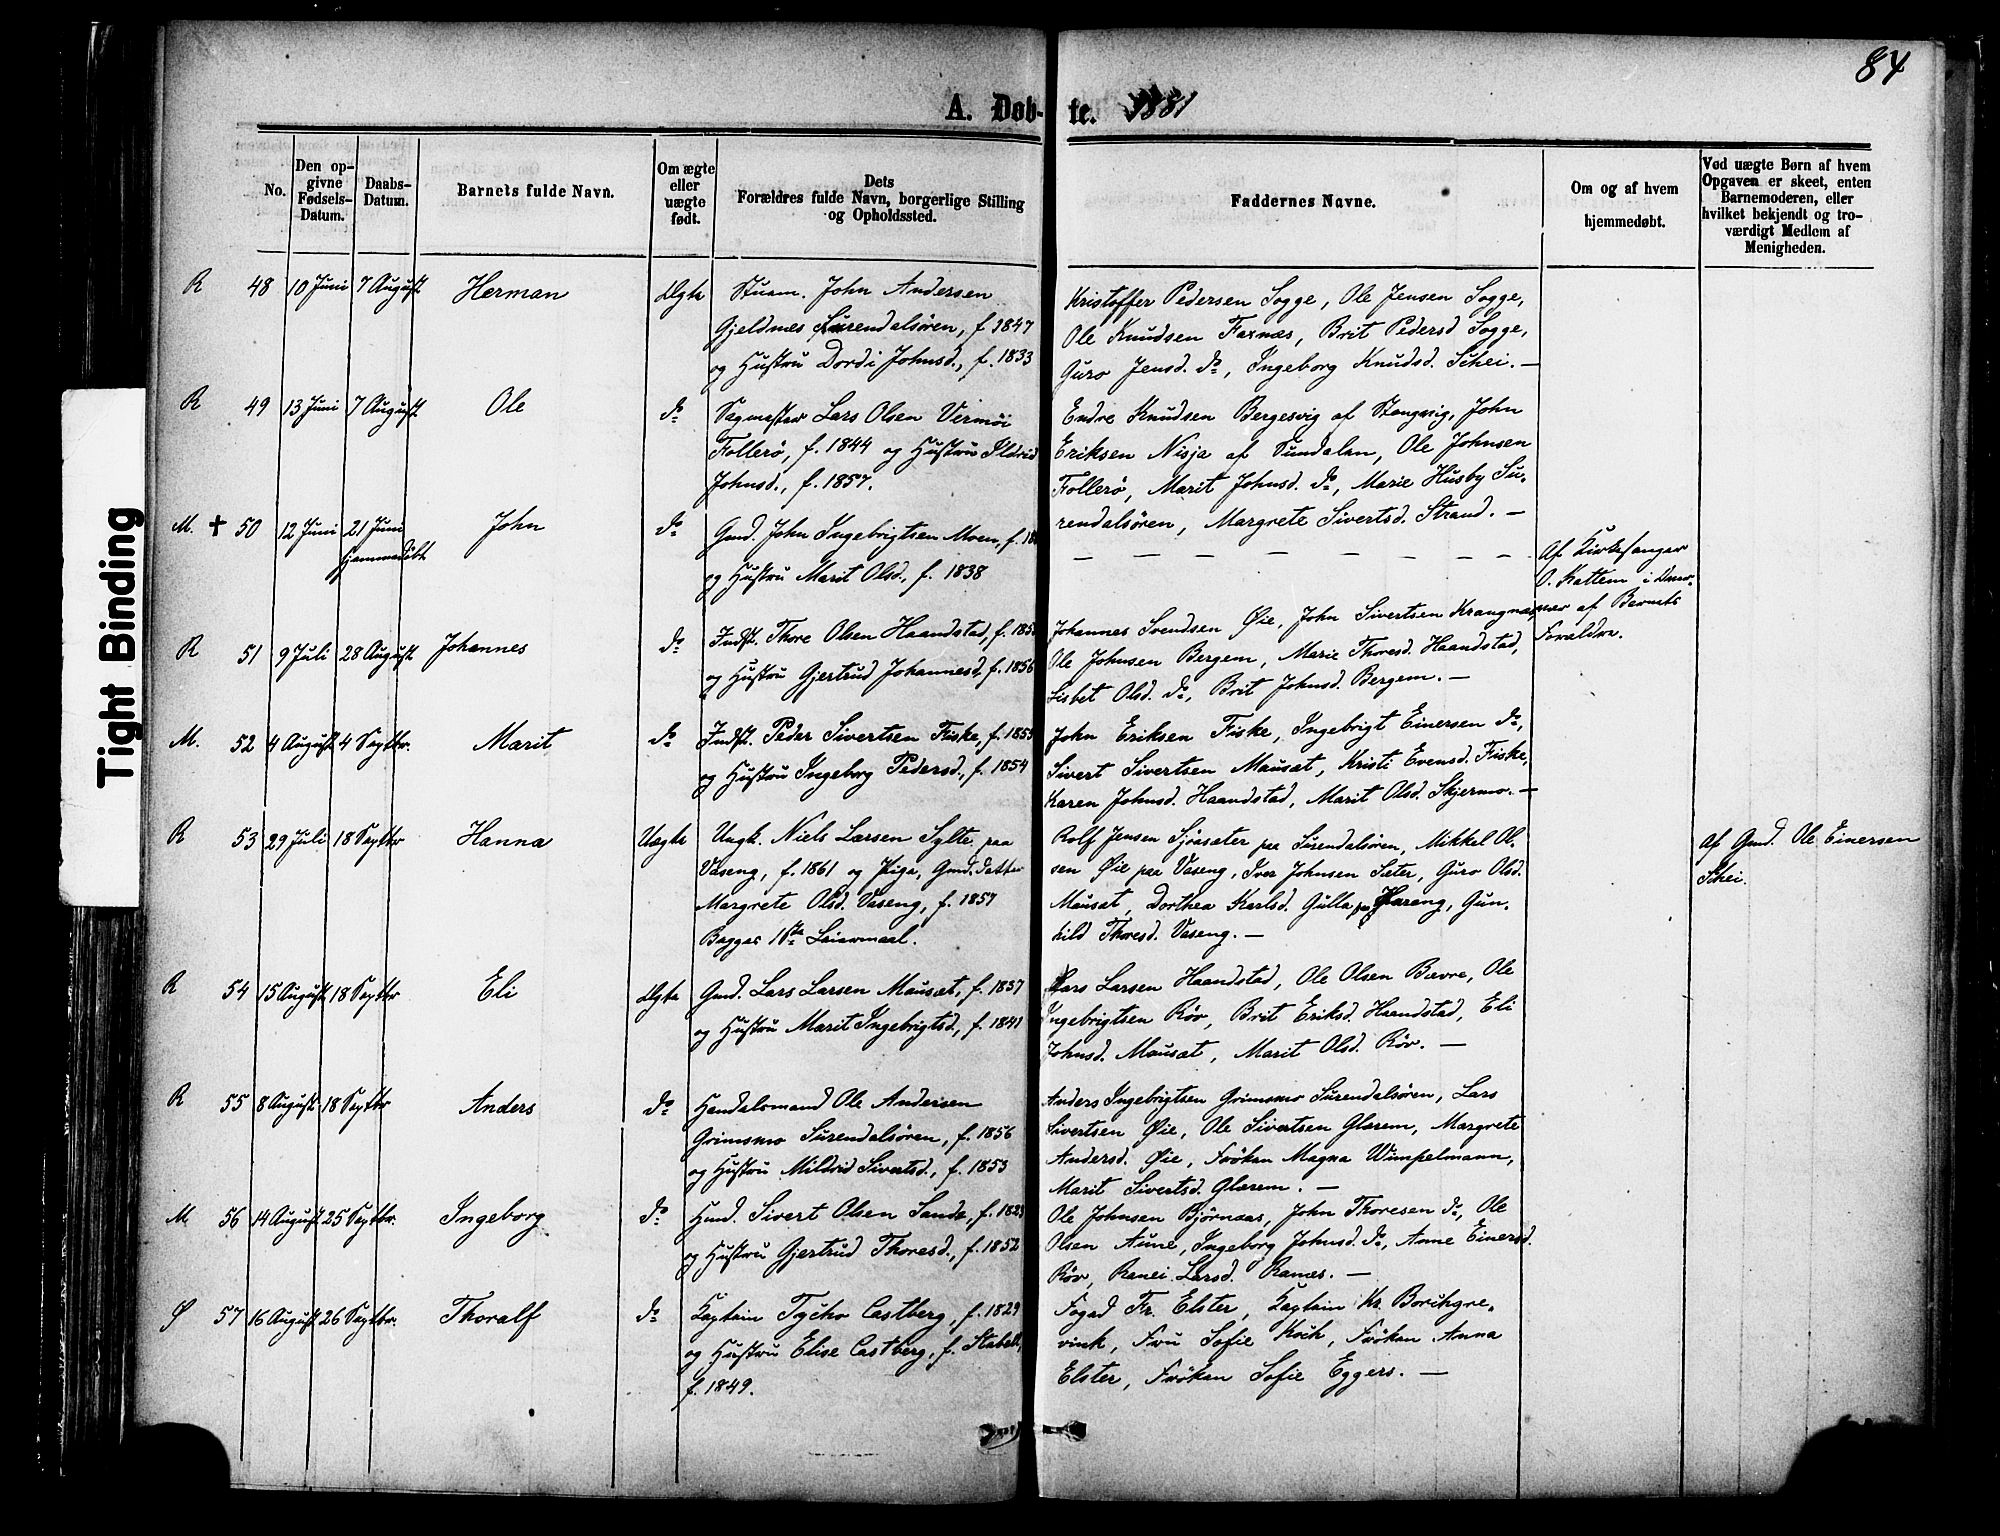 84
A. Døb- te. 1881
No.
Den op-
givne
Fødsels-
Datum.
Daabs-
Datum.
Barnets fulde Navn.
Om ægte
eller
uægte
født.
Dets
Forældres fulde Navn, borgerlige Stilling
og Opholdssted.
Faddernes Navne.
Om og af hvem
hjemmedøbt.
Ved uægte Børn af hvem
Opgaven er skeet, enten
Barnemoderen, eller
hvilket bekjendt og tro-
værdigt Medlem af
Menigheden.
R 48 10 Juni 7 August Herman Ægte
John Andersen
Gjeldnes Surendalsören, f. 1847
og Hustru Dordi Johnsd., f. 1833
Kristoffer Pedersen Sogge, Ole Jensen Sogge,
Ole Knudsen Farnæs, Brit Pedersd Sogge,
Guro Jensd. do, Ingeborg Knudsd. Schei. —
R 49 13 Juni 7 August Ole do
Sagmester Lars Olsen Vermöi
Follerö, f. 1844 og Hustru Ildrid
Johnsd., f. 1857.
Endre Knudsen Bergesvig af Stangvig, John
Eriksen Nisja af Sundalen, Ole Johnsen
Follerö, Marit Johnsd. do, Marie Husby Su-
rendalsören, Margrete Sivertsd. Strand. —
M. + 50 12 Juni 21 Juni John do
hjemmedöbt
Gmd. John Ingebrigtsen Moen, f.
og Hustru Marit Olsd., f. 1838
— — — — — — — — —
Af Kirkesanger
O. Kattem i Nær-
vær af Barnets
Forældre.
R 51 9 Juli 28 August Johannes do
Indst. Thore Olsen Haandstad, f.
og Hustru Gjertrud Johannesd., f. 1856
Johannes Svendsen Øie, John Sivertsen Krangnæs,
Ole Johnsen Bergem, Marie Thoresd. Haandstad,
Lisbet Olsd. do, Brit Johnsd. Bergem. —
M. 52 4 August 4 Septbr. Marit do
Indst. Peder Sivertsen Fiske, f. 1853
og Hustru Ingeborg Pedersd., f. 1854
John Eriksen Fiske, Ingebrigt Einersen do,
Sivert Sivertsen Mausat, Kristi Evensd. Fiske,
Karen Johnsd. Haandstad, Marit Olsd. Skjermo. —
R 53 29 Juli 18 Septbr Hanna Uægte
Ungk. Niels Larsen Sylte paa
Vaseng, f. 1861 og Pige, Gmd. Datter
Margrete Olsd. Vaseng, f. 1857
Begges 1ste Leiermaal.
Rolf Jensen Sjøsæter paa Surendalsören, Mikkel Ol-
sen Øie paa Vaseng, Iver Johnsen Sæter, Guro Olsd.
Mausat, Dorthea Karlsd. Gulla paa Harang, Gun-
hild Thoresd. Vaseng. —
Af Gmd. Ole Einersen
Schei.
R 54 15 August 18 Septbr Eli Ægte
Gmd. Lars Larsen Mausat, f. 1837
og Hustru Marit Ingebrigtsd., f. 1841
Lars Larsen Haandstad, Ole Olsen Bævre, Ole
Ingebrigtsen Röv, Brit Eriksd. Haandstad, Eli
Johnsd. Mausat, Marit Olsd. Röv. —
R 55 8 August 18 Septbr Anders do
Handelsmand Ole Andersen
Grimsmo Surendalsören, f. 1856
og Hustru Mildrid Sivertsd., f. 1853
Anders Ingebrigtsen Grimsmo Surendalsören, Lars
Sivertsen Øie, Ole Sivertsen Glærem, Margrete
Andersd. Øie, Fröken Magna Wimpelmann,
Marit Sivertsd. Glærem. —
M. 56 14 August 25 Septbr. Ingeborg do
Gmd. Sivert Olsen Sande, f. 1829
og Hustru Gjertrud Thoresd., f. 1852
Ole Johnsen Björnaas, John Thoresen do, Ole
Olsen Aune, Ingeborg Johnsd. do, Anne Einersd.
Röv, Ranei Larsd. Ranes. —
Ø 57 16 August 26 Septbr. Thoralf do
Kaptein Tycho Castberg, f. 1829
og Hustru Elise Castberg, f. Stabell,
f. 1849.
Foged Fr. Elster, Kaptein Kr. Borchgre-
vink, Fru Sofie Koch, Fröken Anna
Elster, Fröken Sofie Eggers. —
Tight Binding